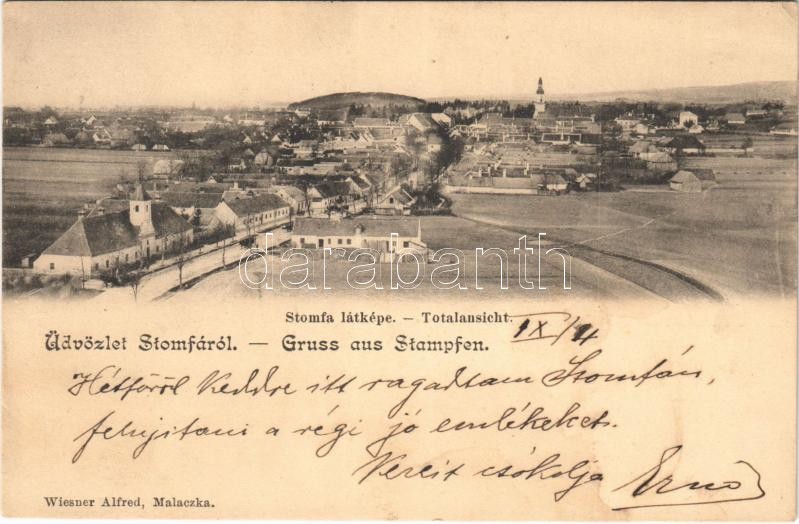 darabanth
Stomfa látképe. — Totalansicht.
IX/4
Üdvözlet Stomfáról. — Gruss aus Stampfen.
Hétfőről Keddre itt ragadtam Stomfán,
felujitani a régi jó emlékeket.
csókolja Ernő
Wiesner Alfred, Malaczka.